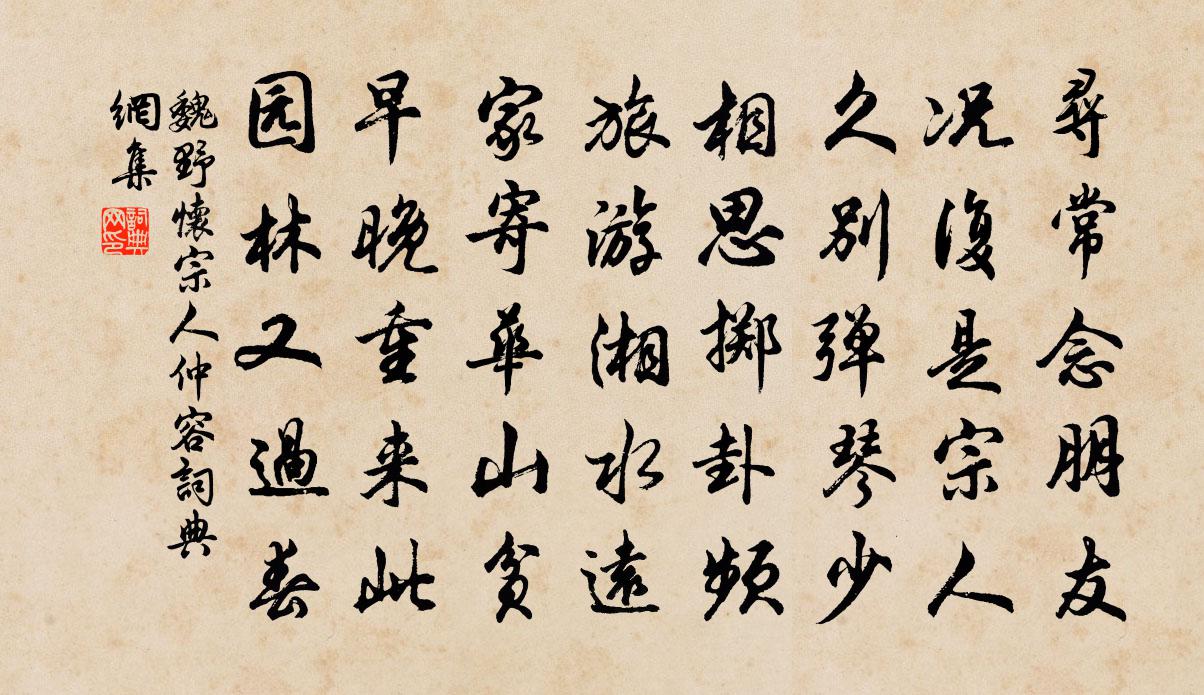 尋常念朋友
况復是宗人
久别弹琴少
相思掷卦频
旅游湘水遠
家寄華山贫
早晚重来此
园林又過春
魏野懷宗人仲容詞典
網集
詞典
网印